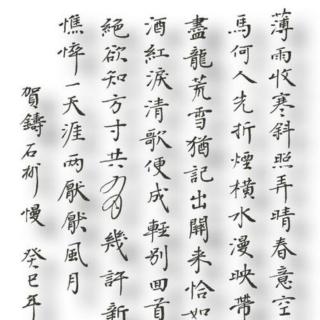 薄雨收寒斜照弄晴春意空
馬何人先折煙橫水漫映帶
盡龍荒雪猶記出開來恰如
酒紅淚清歌便成輕別回首
絕欲知方寸共幾許新
憔悴一天涯两厭厭風月
賀鑄石州慢 癸巳年